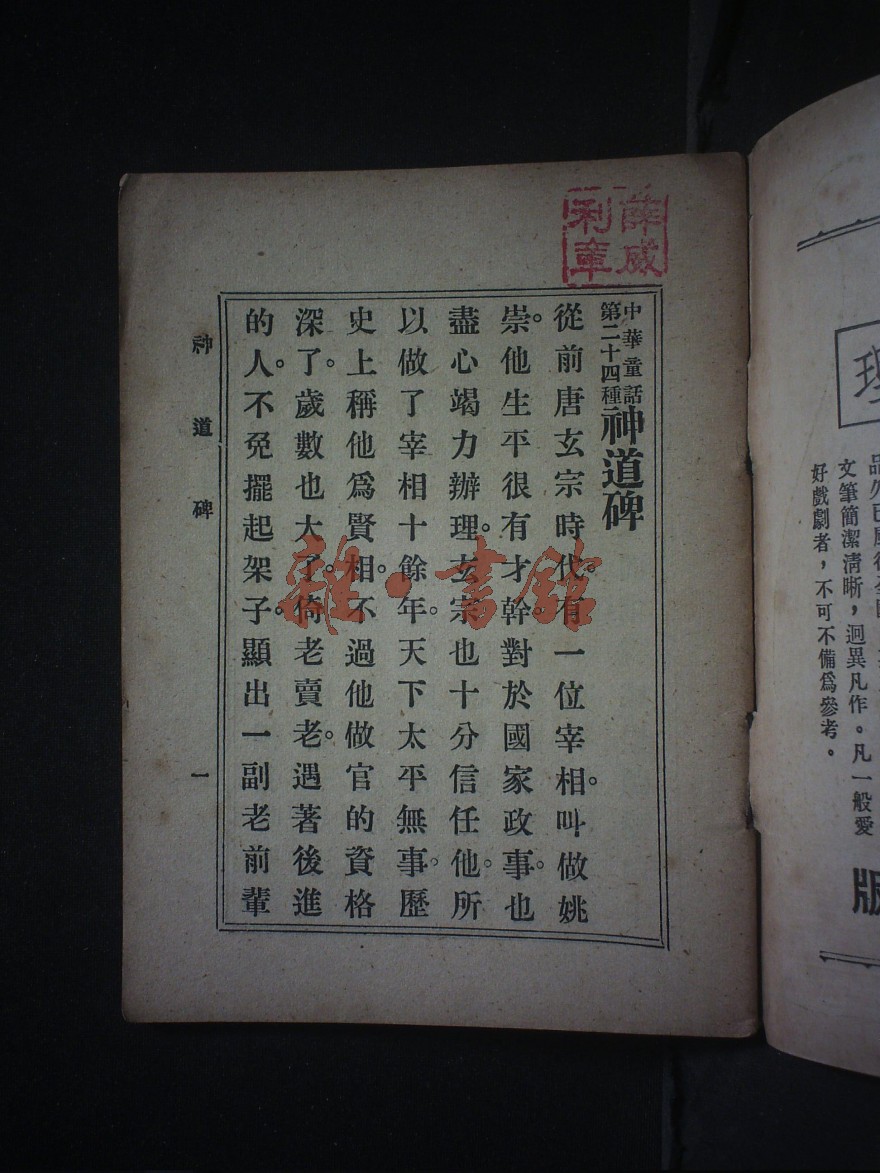 中華童話
第二十四種
神道碑
從前唐玄宗時代。有一位宰相。叫做姚
崇。他生平很有才幹。對於國家政事。也
盡心竭力辦理。玄宗也十分信任他。所
以做了宰相十餘年。天下太平無事。歷
史上稱他爲賢相。不過他做官的資格
深了。歲數也大了。倚老賣老。遇著後進
的人。不免擺起架子。顯出一副老前輩
神道碑
一
薛威
利章
雜·書館
文筆簡潔清晰，迥異凡作。凡一般愛
好戲劇者，不可不備爲參考。
版